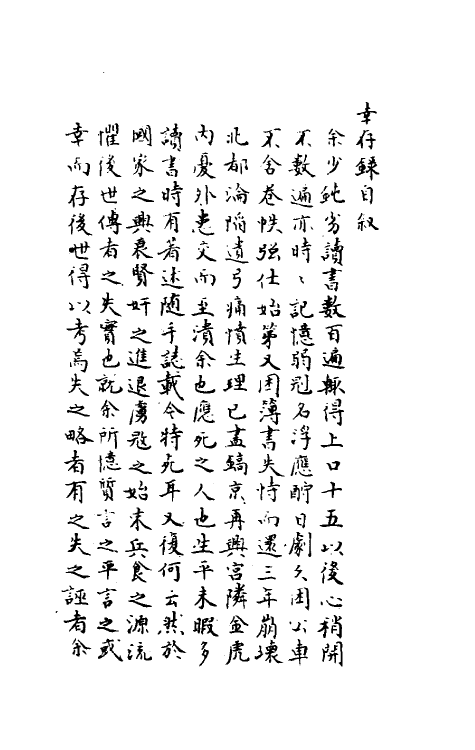 幸存錄自敘
余少鈍劣讀書數百遍輒得上口十五以後心稍開
不數遍亦時〻記憶弱冠名浮應酧日劇久困公車
不舍卷帙強仕始第又困簿書失恃而還三年崩壞
北都淪陷遺弓痛憤生理已盡鎬京再興宮隣金虎
內憂外患交而至潰余也應死之人也生平未暇多
讀書時有著述隨手誌載今特死耳又復何云然於
國家之興衰賢奸之進退虜寇之始末兵食之源流
懼後世傳者之失實也就余所憶質言之平言之或
幸而存後世得以考焉失之略者有之失之誣者余